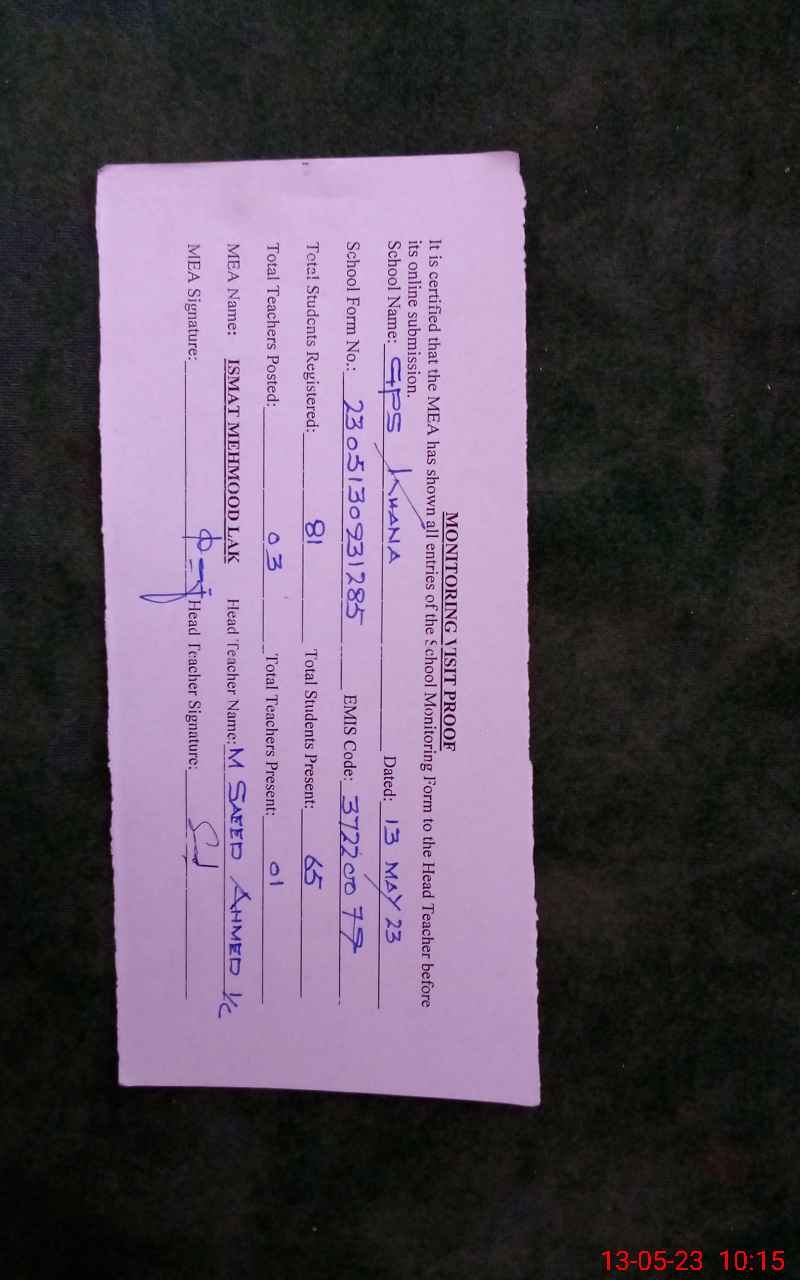 MONITORING VISIT PROOF
It is certified that the MEA has shown all entries of the School Monitoring Form to the Head Teacher before
its online submission.
School Name: GPS KHANA Dated: 13 MAY 23
School Form No.: 2305130931285 EMIS Code: 37220079
Total Students Registered: 81 Total Students Present: 65
Total Teachers Posted: 03 Total Teachers Present: 01
MEA Name: ISMAT MEHMOOD LAK Head Teacher Name: M SAEED AHMED I/C
MEA Signature: Head Teacher Signature:
13-05-23 10:15